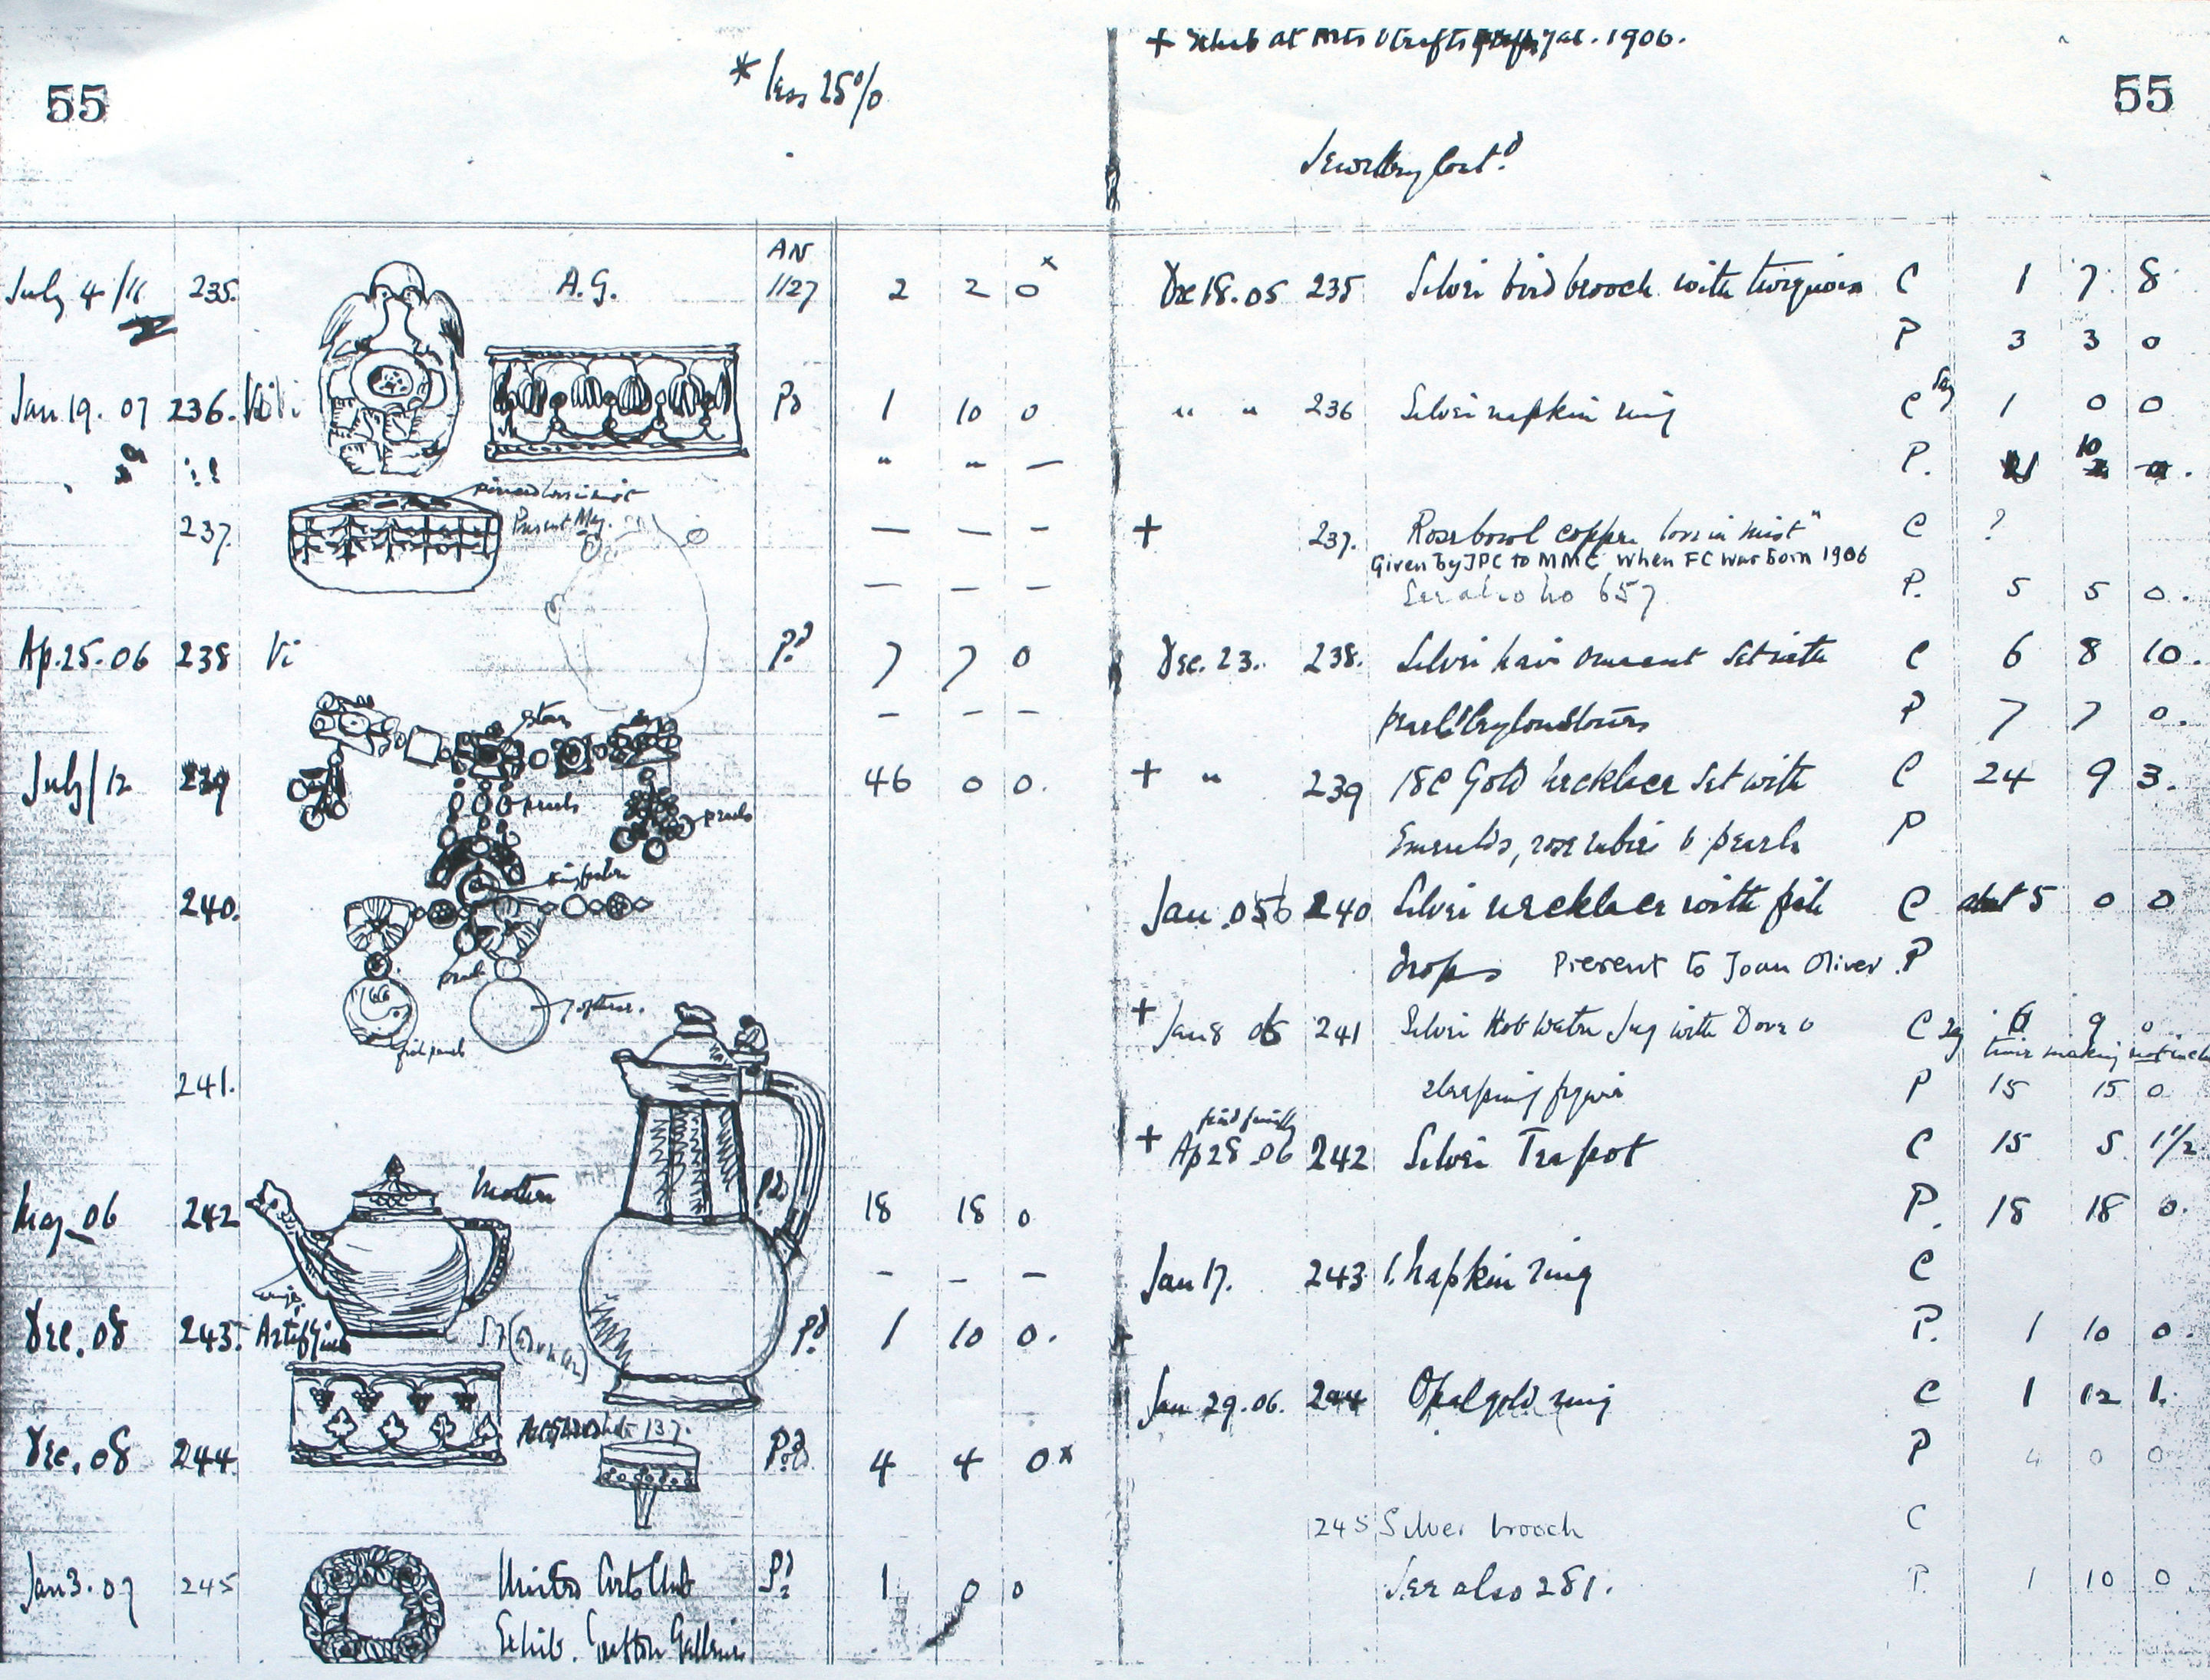 55
* less 25%
AN
July 4/11 235. A.G. 1127 2 2 0 x
Jan 19. 07 236. Pd 1 10 0
" " —
Present May.
237. — — —
— — —
Ap. 25. 06 238 Vi Pd 7 7 0
stones
— — —
July/12 239 46 0 0.
pearls
pearls
240.
pearl
fish pearls
241.
Mother
May 06 242 Pd 18 18 0
— — —
wings
Dec. 08 243. Pd 1 10 0.
137.
Dec. 08 244. Pd 4 4 0 x
Jan 3. 07 245 United Arts Club Pd 1 0 0
Exhib. Grafton Galleries
+ Exhib at Arts & Crafts Jan. 1906.
55
Jewellery Contd
Dec 18. 05 235 Silver bird brooch with turquoise C 1 7 8
P 3 3 0
" " 236 Silver napkin ring C say 1 0 0
P. 1 10
+ 237. Rose bowl copper love in mist" C ?
Given by JPC to MMC when FC was born 1906
See also No 657 P. 5 5 0.
Dec. 23. 238. Silver hair ornament set with C 6 8 10.
pearl & Ceylon stones P 7 7 0.
+ " 239 18C Gold necklace set with C 24 9 3.
Emeralds, rose rubies & pearls P
Jan. 056 240 Silver necklace with fish C about 5 0 0
drops Present to Joan Oliver. P
+ Jan 8 06 241 Silver Hot Water Jug with Dove & C say 6 9 0
time making not incl
sleeping figure P 15 15 0
+ Ap 28. 06 242 Silver Teapot C 15 5 1 1/2
P. 18 18 0.
Jan 17. 243 1. Napkin ring C
+ P. 1 10 0.
Jan 29. 06. 244 Opal gold ring C 1 12 1.
P 4 0 0
245 Silver brooch C
See also 281. P. 1 10 0